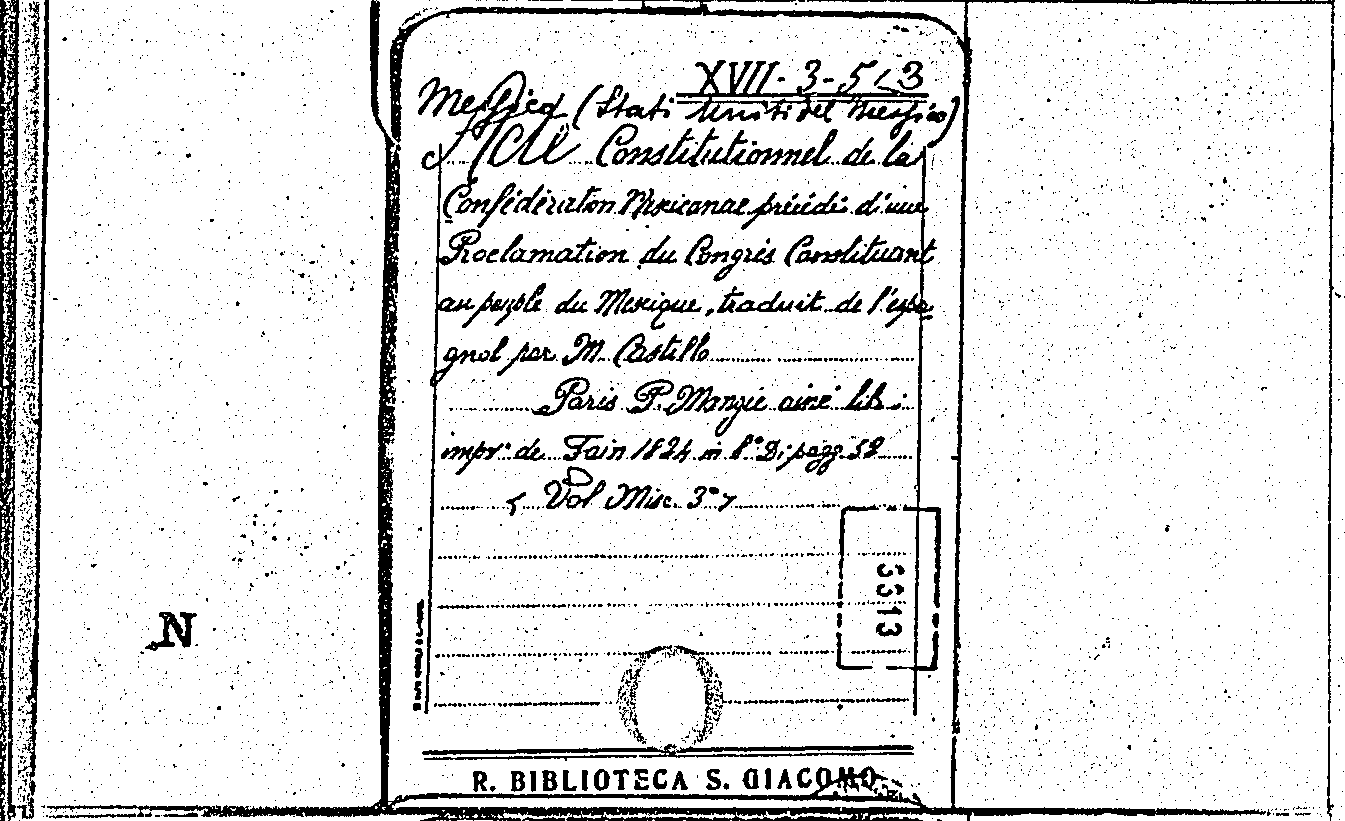 XVII-3-5<3
Messico (Stati Uniti del Messico)
Acte Constitutionnel de la
Confédération Mexicanae précédé d'une
Proclamation du Congrés Constituant
au peuple du Mexique, traduit de l'espa
gnol par M. Castillo
Paris P. Mongie ainé lib.
impr. de Fain 1824 in 8° Di pagg 52
< Vol Misc. 3° 7
3313
N
R. BIBLIOTECA S. GIACOMO